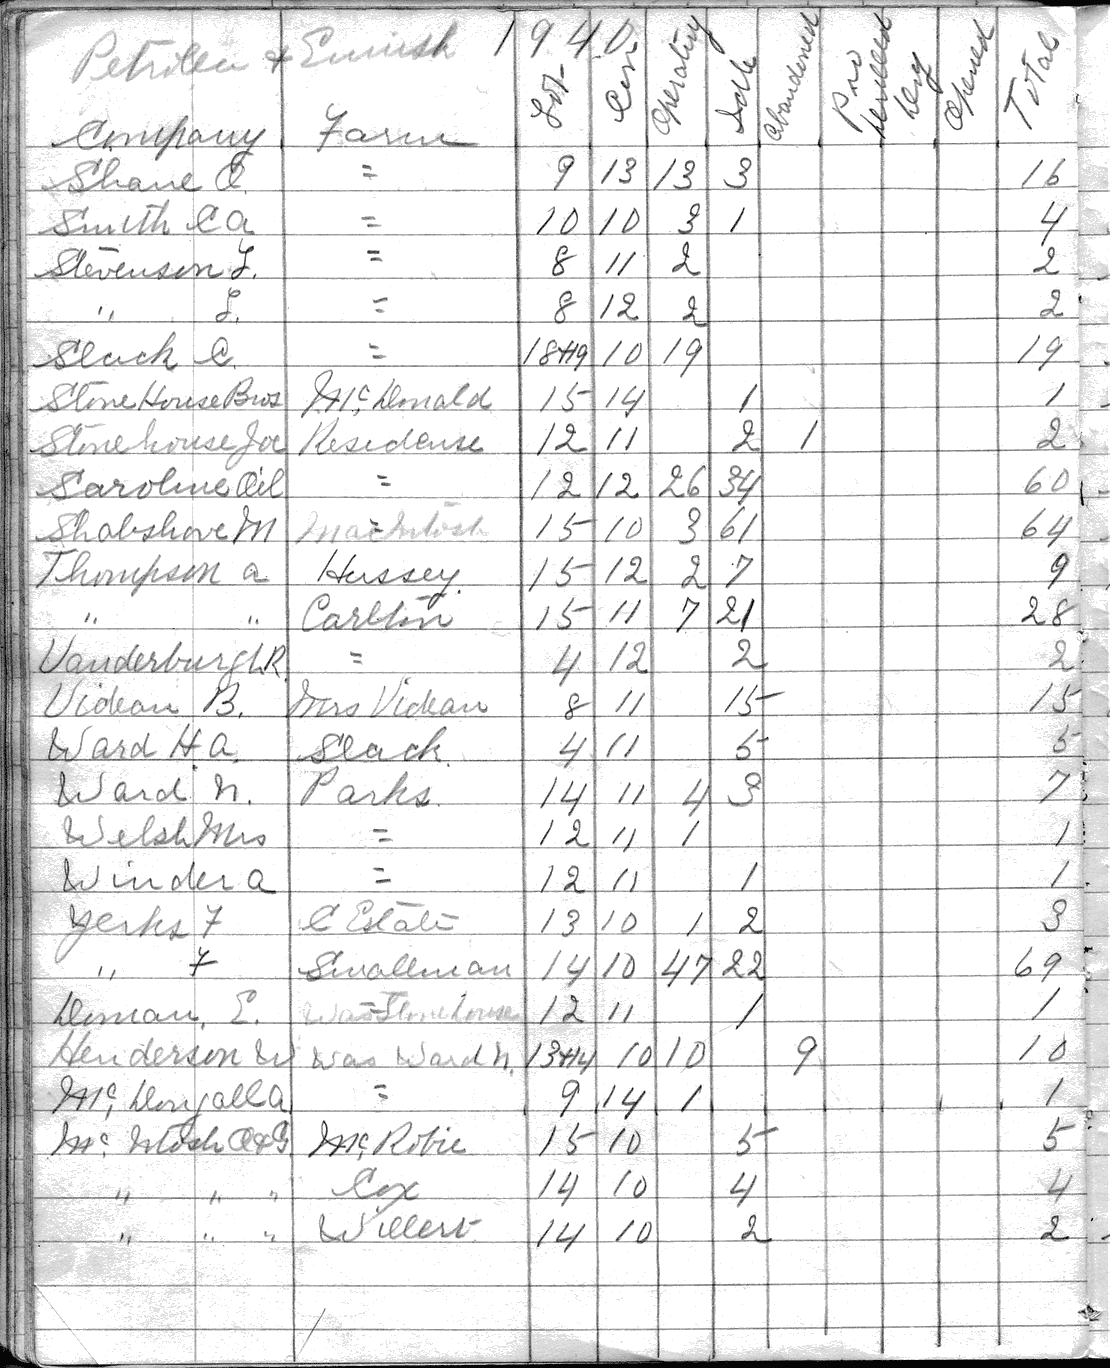 Petrolea & Ennisk 1940
Company Farm Lot Con. Operating Idle Abandoned Pro Drilled Dry Opened Total
Shane O. = 9 13 13 3 16
Smith C a = 10 10 3 1 4
Stevenson F. = 8 11 2 2
" F. = 8 12 2 2
Slack C. = 18+19 10 19 19
Stone House Bros McDonald 15 14 1 1
Stonehouse Joe Residense 12 11 2 1 2
Saroline Oil = 12 12 26 34 60
Shabshove M MacIntosh = 15 10 3 61 64
Thompson a Hussey. 15 12 2 7 9
" " Carlton 15 11 7 21 28
Vanderburgh R. = 4 12 2 2
Videan B. Mrs Videan 8 11 15 15
Ward H a. Slack. 4 11 5 5
Ward N. Parks. 14 11 4 3 7
Welsh Mrs = 12 11 1 1
Winder a = 12 11 1 1
Yerks F C Estate 13 10 1 2 3
" F Smallman 14 10 47 22 69
Doman, E. Was Stonehouse = 12 11 1 1
Henderson W Was Ward N. 13+14 10 10 9 10
Mc, Dougall a = 9 14 1 1
Mc. Intosh O&G Mc, Robie 15 10 5 5
" " " Cox 14 10 4 4
" " " Willert 14 10 2 2